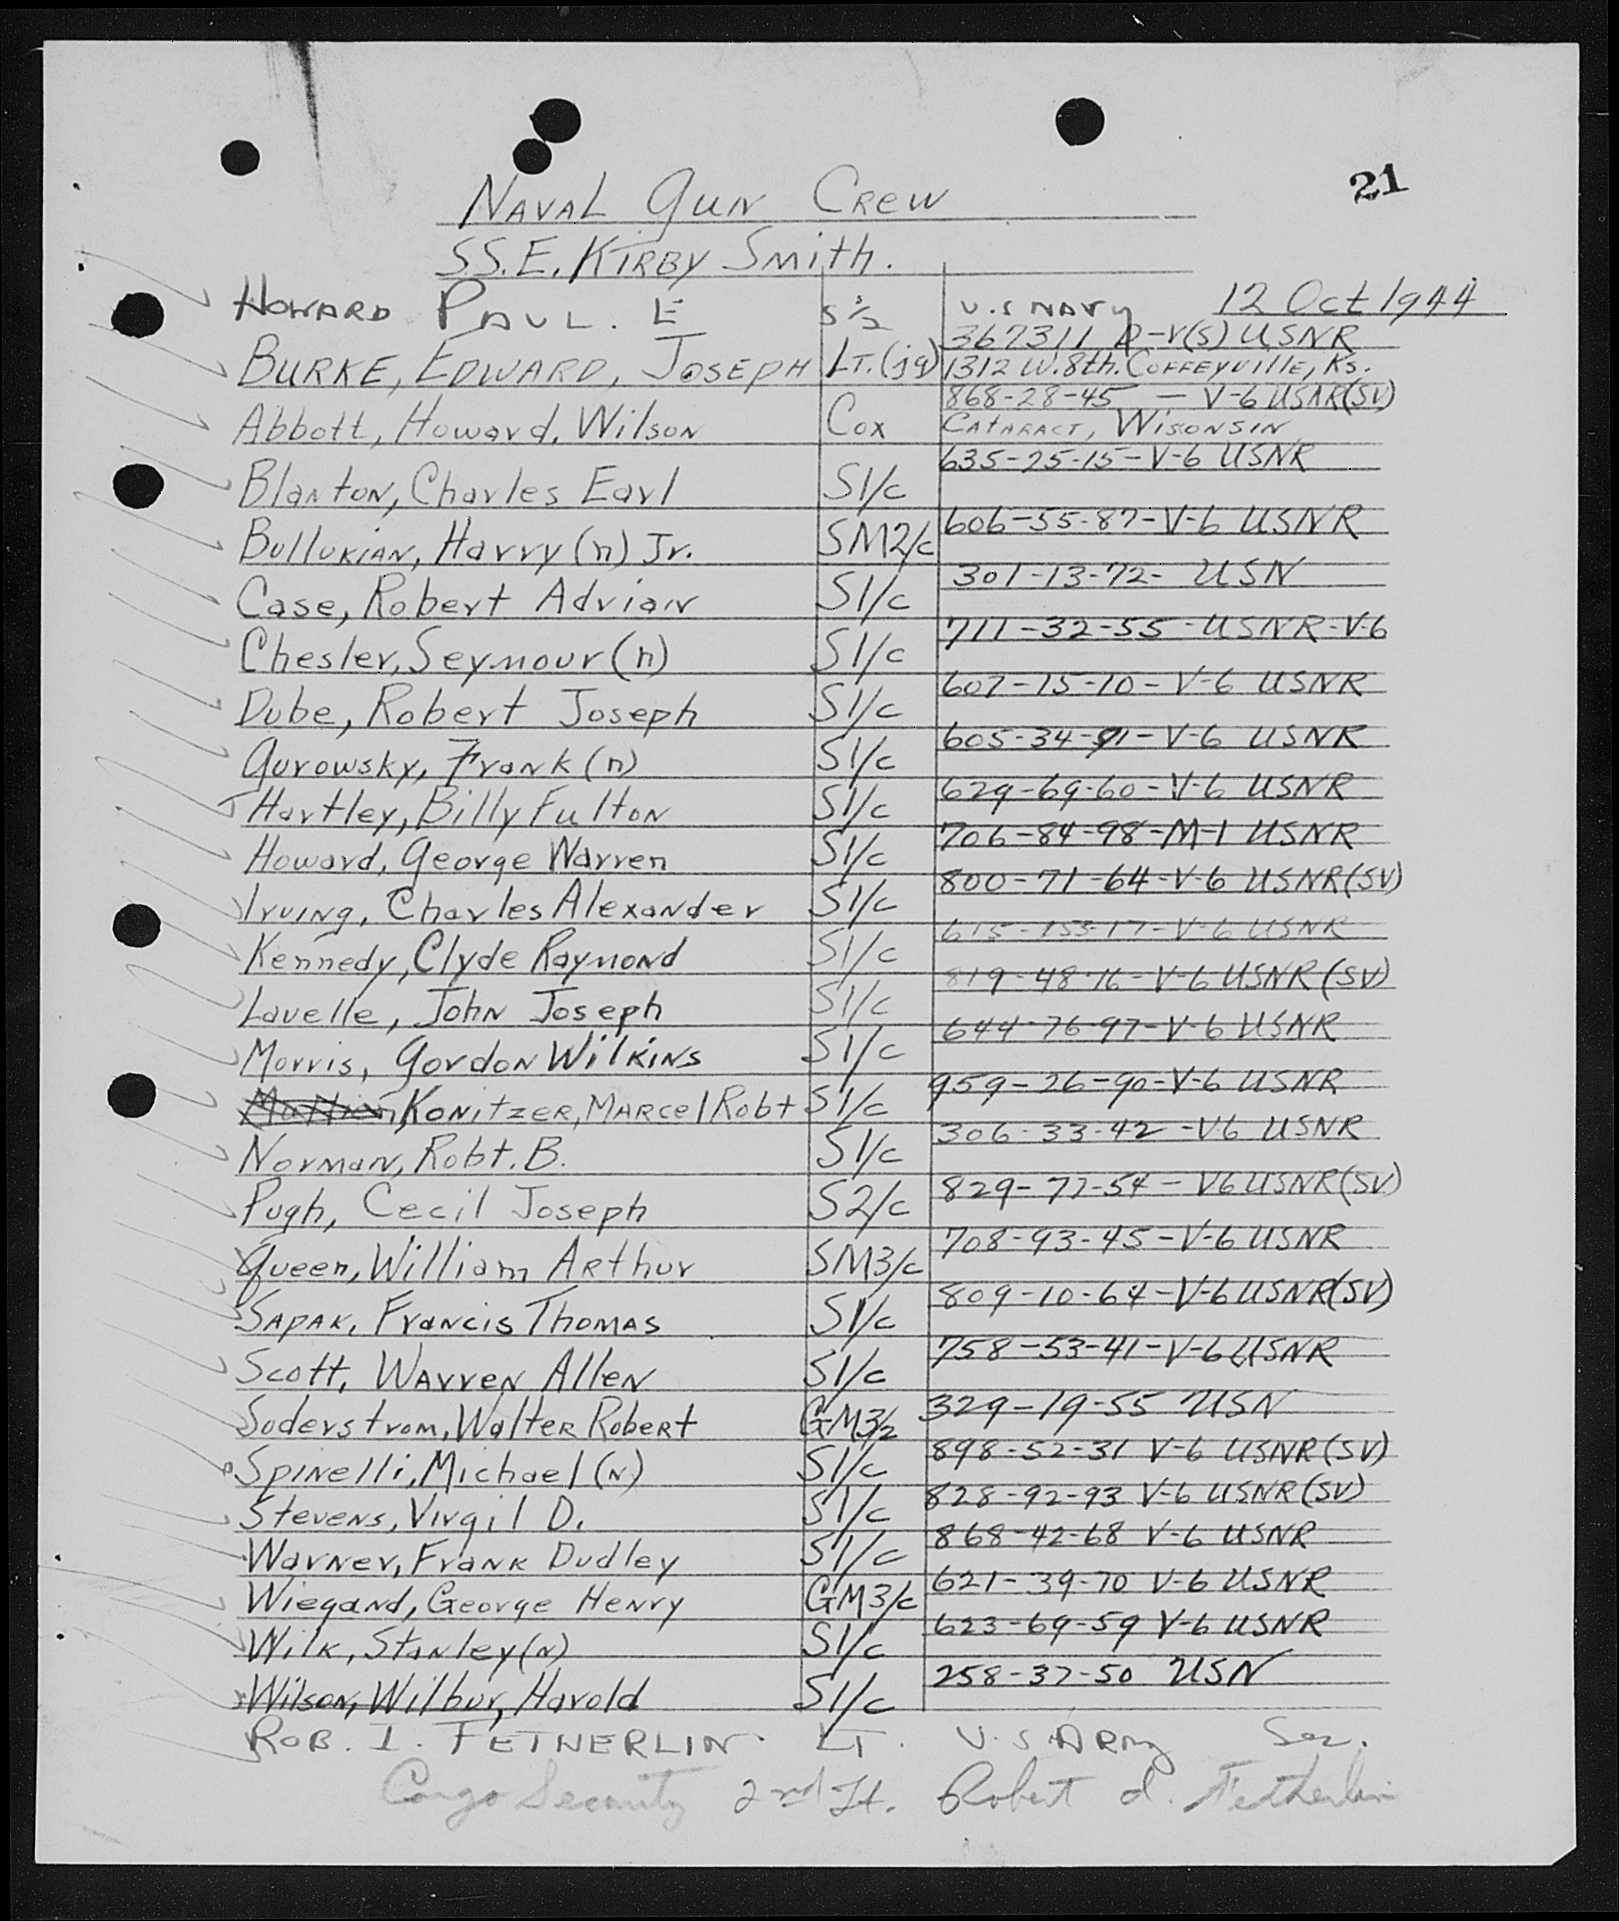 21
NAVAL GUN CREW
S.S. E. KIRBY SMITH.
12 Oct 1944
HOWARD PAUL. E S 1/2 U.S NAVY
367311 D-V(S) USNR
BURKE, EDWARD, JOSEPH LT.(jg) 1312 W. 8th. COFFEYVILLE, KS.
868-28-45 — V-6 USNR(SV)
Abbott, Howard, Wilson Cox CATARACT, WISONSIN
635-25-15-V-6 USNR
Blanton, Charles Earl S1/c
606-55-87-V-6 USNR
Bullukian, Harry (n) Jr. SM2/c
301-13-72- USN
Case, Robert Adrian S1/c
711-32-55-USNR-V-6
Chesler, Seymour (n) S1/c
607-15-10-V-6 USNR
Dube, Robert Joseph S1/c
605-34-91-V-6 USNR
Gurowsky, Frank (n) S1/c
629-69-60-V-6 USNR
Hartley, Billy Fulton S1/c
706-84-98-M-1 USNR
Howard, George Warren S1/c
800-71-64-V-6 USNR(SV)
Irving, Charles Alexander S1/c
V-6 USNR
Kennedy, Clyde Raymond S1/c
819-48-76-V-6 USNR(SV)
Lavelle, John Joseph S1/c
644-76-97-V-6 USNR
Morris, Gordon Wilkins S1/c
959-26-90-V-6 USNR
Konitzer, Marcel Robt S1/c
306-33-42-V6 USNR
Norman, Robt. B. S1/c
829-77-54-V6 USNR(SV)
Pugh, Cecil Joseph S2/c
708-93-45-V-6 USNR
Queen, William Arthur SM3/c
809-10-64-V-6 USNR(SV)
Sapak, Francis Thomas S1/c
758-53-41-V-6 USNR
Scott, Warren Allen S1/c
329-19-55 USN
Soderstrom, Walter Robert GM3/c
898-52-31 V-6 USNR(SV)
Spinelli, Michael (n) S1/c
828-92-93 V-6 USNR(SV)
Stevens, Virgil D. S1/c
868-42-68 V-6 USNR
Warner, Frank Dudley S1/c
621-39-70 V-6 USNR
Wiegand, George Henry GM3/c
623-69-59 V-6 USNR
Wilk, Stanley (n) S1/c
258-37-50 USN
Wilson, Wilbur, Harold S1/c
ROB. I. FETHERLIN. LT. U.S ARMY Sec.
Cargo Security 2nd Lt. Robert I. Fetherlin